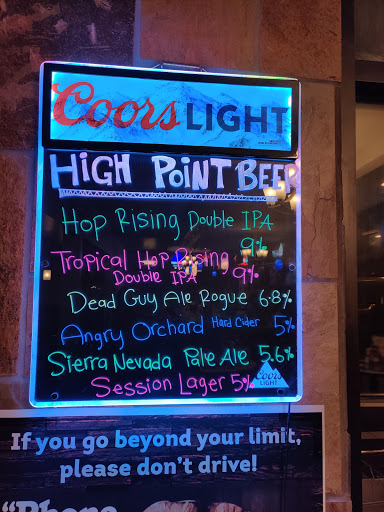 Coors LIGHT
HIGH POINT BEER
Hop Rising Double IPA
9%
Tropical Hop Rising
Double IPA 9%
Dead Guy Ale Rogue 6.8%
Angry Orchard Hard Cider 5%
Sierra Nevada Pale Ale 5.6%
Session Lager 5%
Coors
LIGHT
If you go beyond your limit,
please don't drive!
"Phone